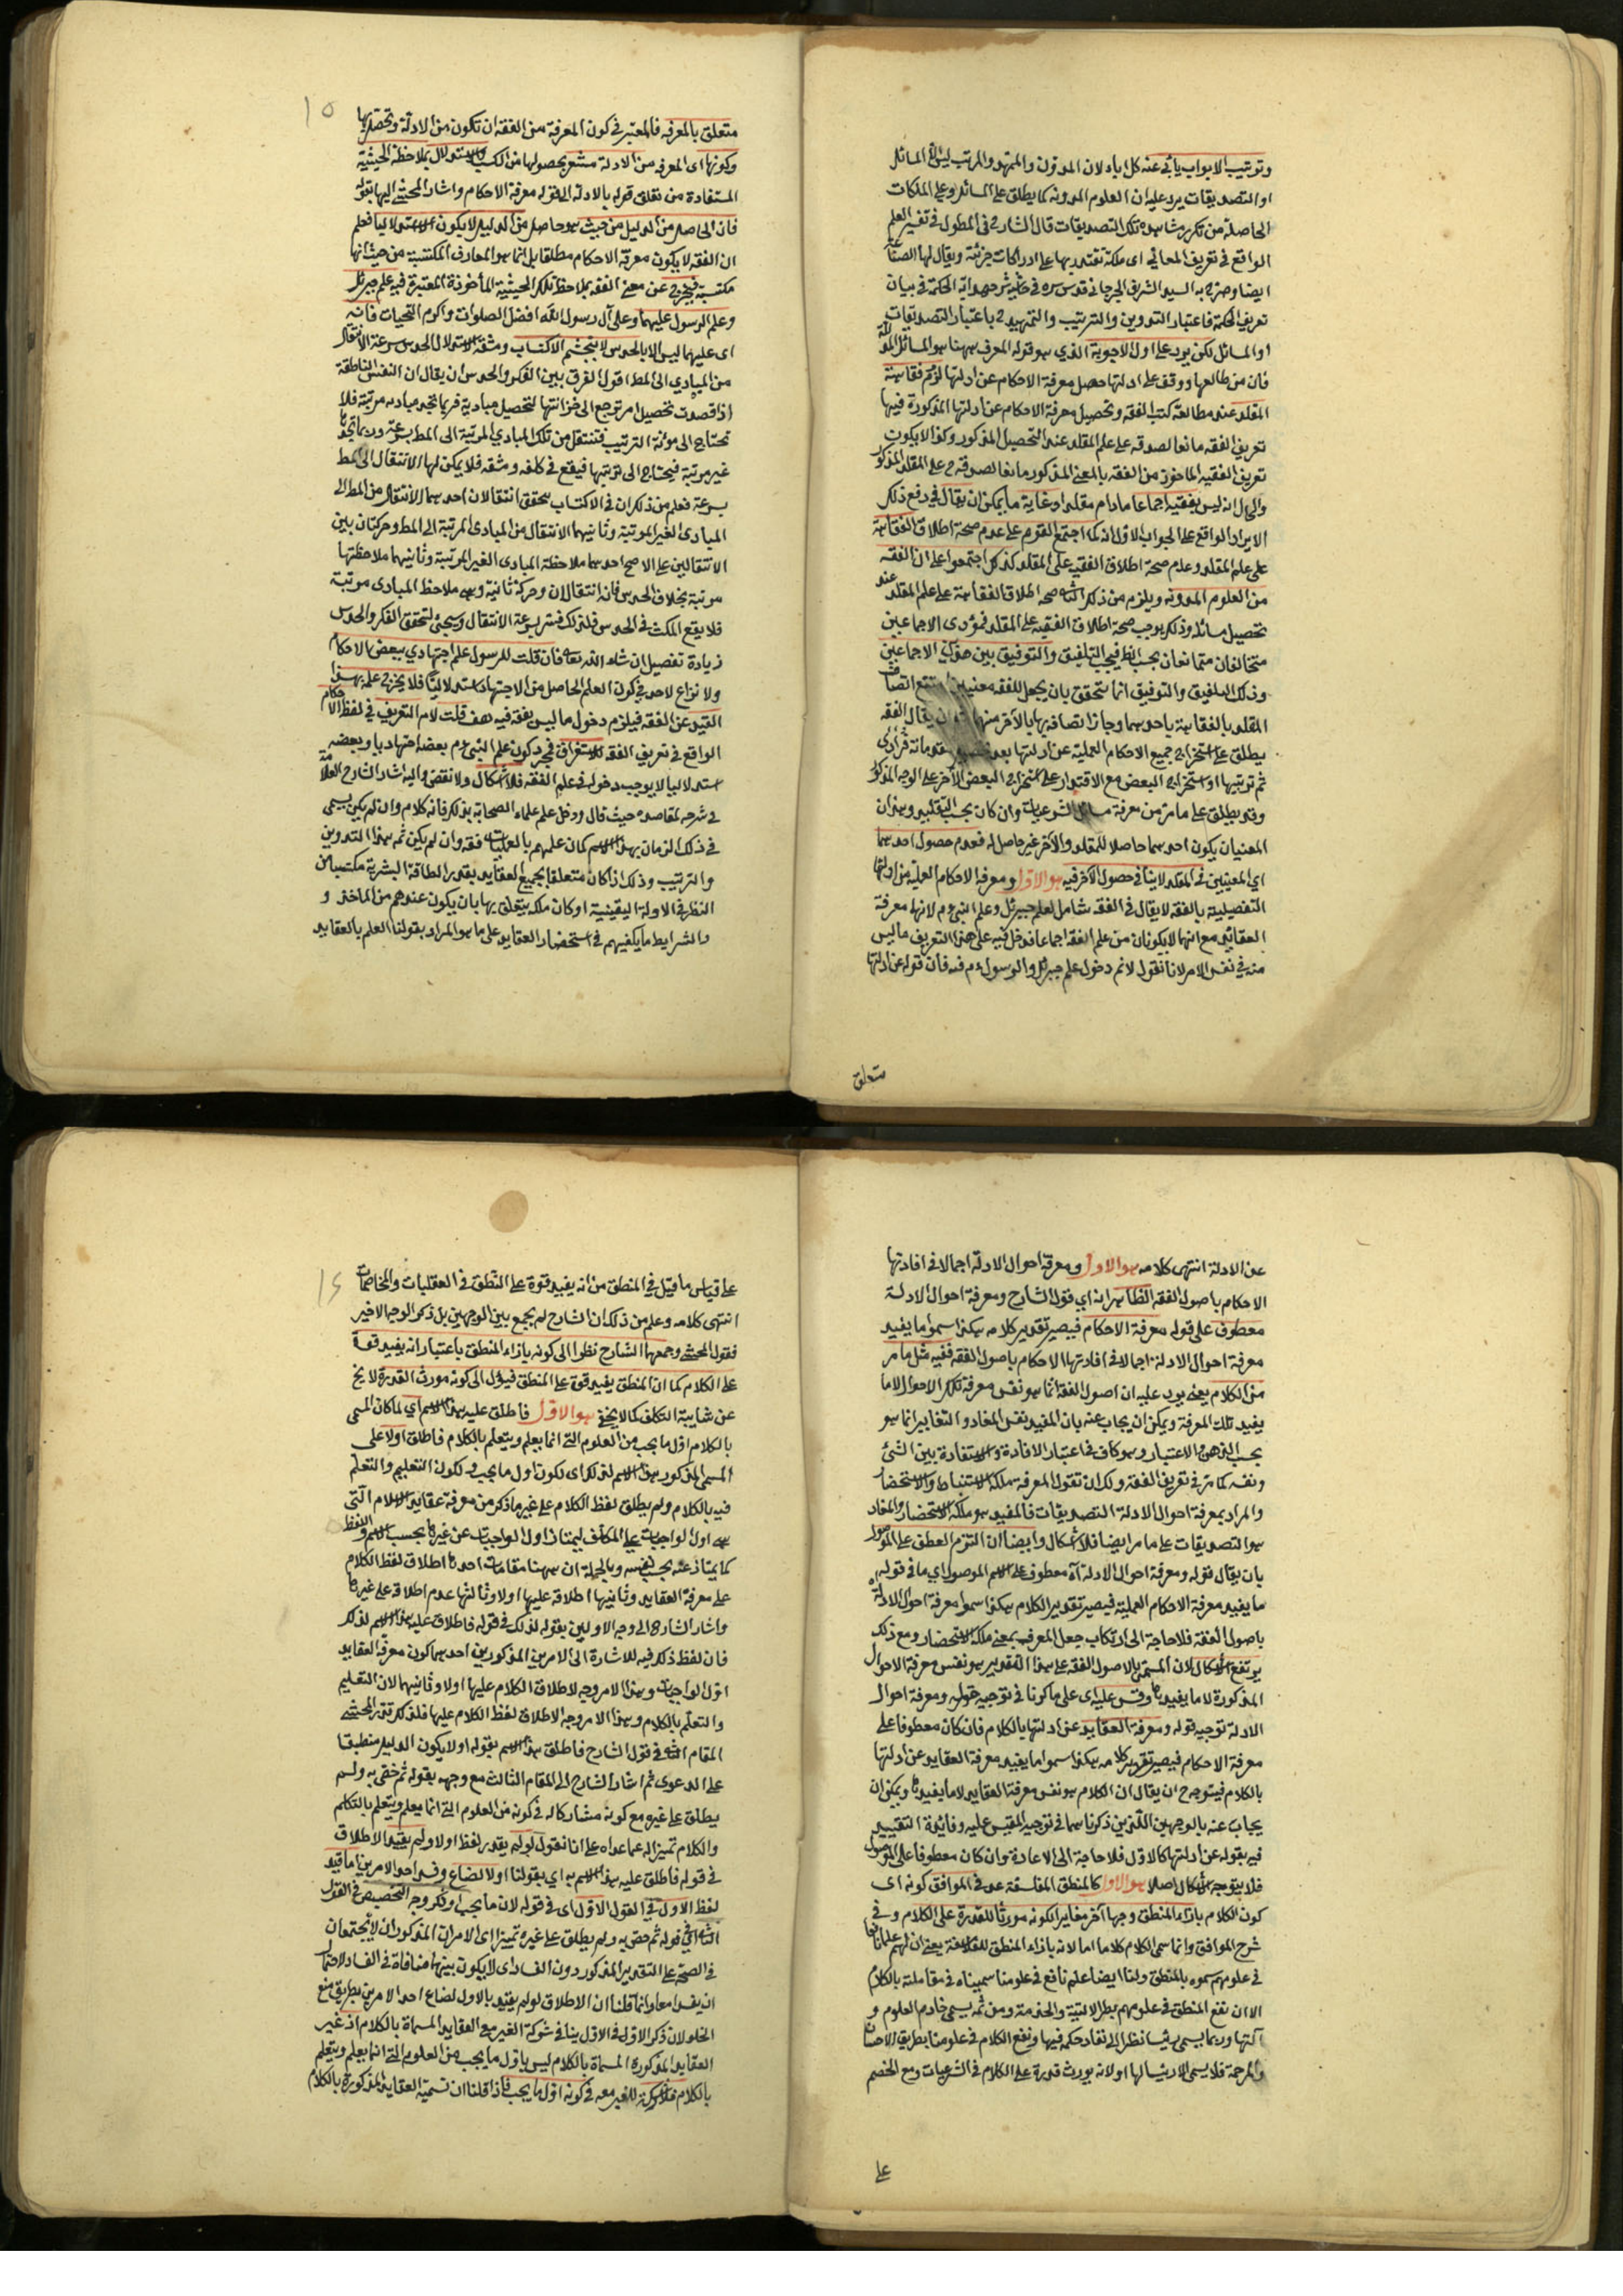 وترتيب الابواب يأبى عنه كل اباء لان المدون والممهد والمرتب ليس الا المسائل
او التصديقات يرد عليه ان العلوم المدونة كما يطلق على المسائل وعلى الملكات
الحاصلة من تكرر مشاهدة تلك التصديقات قال الشارح في المطول في تفسير العلم
الواقع في تعريف المعاني اى ملكة تقتدر بها على ادراكات جزئية ويقال لها الصناعة
ايضا وصرح به السيد الشريف الجرجاني قدس سره في حاشية شرح هداية الحكمة في بيان
تعريف الحكمة فاعتبار التدوين والترتيب والتمهيد ح باعتبار التصديقات
او المسائل لكن يرد على اول الاجوبة الذي هو قوله المعرف ههنا هو المسائل المدللة
فان من طالعها ووقف على ادلتها حصل معرفة الاحكام عن ادلتها لزوم فقاهة
المقلد عند مطالعة كتب الفقه وتحصيل معرفة الاحكام عن ادلتها المذكورة فيها
تعريف الفقه مانعا لصدقه على علم المقلد عند التحصيل المذكور وكذا لا يكون
تعريف الفقيه الماخوذ من الفقه بالمعنى المذكور مانعا لصدقه ح على المقلد المذكور
والحال انه ليس بفقيه اجماعا مادام مقلدا وغاية ما يمكن ان يقال في دفع ذلك
الايراد الواقع على الجواب الاول انه كما اجتمع القوم على عدم صحة اطلاق الفقاهة
على علم المقلد وعدم صحة اطلاق الفقيه على المقلد كذلك اجتمعوا على ان الفقه
من العلوم المدونة ويلزم من ذلك صحة اطلاق الفقاهة على علم المقلد عند
تحصيل مسائله وذلك يوجب صحة اطلاق الفقيه على المقلد فمؤدى الاجماعين
متخالفان متمانعان بحسب الظ فيجب التلفيق والتوفيق بين الاجماعين
وذلك التلفيق والتوفيق انما يتحقق بان يجعل للفقه معنيين امتنع اتصاف
المقلد بالفقاهة باحدهما وجاز اتصافه بها بالآخر منهما يقال الفقه
يطلق على استخراج جميع الاحكام العملية عن ادلتها بعد مقدماته فرادى
ثم ترتيبها او استخراج البعض مع الاقتدار على استخراج البعض الآخر على الوجه المذكور
وقد يطلق على ما مر من معرفة مسائل الشرعيات وان كان بحسب التقليد وهذان
المعنيان يكون احدهما حاصلا للمقلد والآخر غير حاصل له فعدم حصول احدهما
اي المعنيين في المقلد لا ينافي حصول الآخر فيه هو الاول ومعرفة الاحكام العملية من ادلتها
التفصيلية بالفقه لا يقال في الفقه شامل لعلم جبرئل وعلم النبي ءم لانها معرفة
العقائد مع انهما لا يكونان من علم الفقه اجماعا فدخل فيه على هذا التعريف ما ليس
منه في نفس الامر لانا نقول لانم دخول علم جبرئل والرسول ءم فيه فان قوله عن ادلتها
متعلق
١٥
متعلق بالمعرفة فالمعتبر في كون المعرفة من الفقه ان تكون من الادلة وتحصل بها
وكونها اى المعرفة من الادلة مشعر بحصولها من الكسب والاستدلال بملاحظة الحيثية
المستفادة من تعلق قوله بالادلة الى قوله معرفة الاحكام واشار المحشي اليها بقوله
فان الحاصل من الدليل من حيث هو حاصل من الدليل لا يكون الا استدلاليا فعلم
ان الفقه لا يكون معرفة الاحكام مطلقا بل انما هو المعارف المكتسبة من حيث انها
مكتسبة فيخرج عن معنى الفقه بملاحظة تلك الحيثية المأخوذة المعتبرة فيه علم جبرئل
وعلم الرسول عليهما وعلى آل رسول الله افضل الصلوات واكرم التحيات فانه
اى عليهما ليس الا بالحدس لا بتجشم الاكتساب ومشقة الاستدلال الحدس سرعة الانتقال
من المبادي الى المط اقول الفرق بين الفكر والحدس ان يقال ان النفس الناطقة
اذا قصدت تحصيل امر ترجع الى خزانتها لتحصيل مبادية فربما تجد مباديه مرتبة فلا
تحتاج الى مؤنة الترتيب فتنتقل من تلك المبادي المرتبة الى المط بسرعة وربما تجدها
غير مرتبة فيحتاج الى ترتيبها فيقع في كلفة ومشقة فلا يمكن لها الانتقال الى المط
بسرعة فعلم من ذلك ان في الاكتساب يتحقق انتقالان احدهما الانتقال من المط الى
المبادى الغير المرتبة وثانيهما الانتقال من المبادى المرتبة الى المط وحركتان بين
الانتقالين على الاصح احدهما ملاحظة المبادى الغير المرتبة وثانيهما ملاحظتها
مرتبة بخلاف الحدس فانه انتقالان وحركة ثانية وهي ملاحظة المبادى مرتبة
فلا يقع المكث في الحدس فلذلك فسر بسرعة الانتقال وسيجئ لتحقق الفكر والحدس
زيادة تفصيل ان شاء الله تعالى فان قلت للرسول علم اجتهادي ببعض الاحكام
ولا نزاع لاحد في كون العلم الحاصل من الاجتهاد استدلاليا فلا يخرج علمه بهذا
القيد عن الفقه فيلزم دخول ما ليس بفقه فيه هف قلت لام التعريف في لفظ الاحكام
الواقع في تعريف الفقه للاستغراق فمجرد كون علم النبي ءم بعضه اجتهاديا وبعضه
استدلاليا لا يوجب دخوله في علم الفقه فلا اشكال ولا نقض واليه اشار الشارح العلامة
في شرحه لمقاصده حيث قال ودخل علم علماء الصحابة بذلك فانه كلام وان لم يكن يسمى
في ذلك الزمان بهذا الاسم كما ان علمهم بالعمليات فقه وان لم يكن ثمه هذا التدوين
والترتيب وذلك اذا كان متعلقا بجميع العقايد بقدر الطاقة البشرية مكتسبا من
النظر في الادلة اليقينية او كان ملكة يتعلق بها بان يكون عندهم من الماخذ و
والشرايط ما يكفيهم في استحضار العقايد على ما هو المراد بقولنا العلم بالعقايد
عن الادلة انتهى كلامه هو الاول ومعرفة احوال الادلة اجمالا في افادتها
الاحكام باصول الفقه الظاهر انه اي قول الشارح ومعرفة احوال الادلة
معطوف على قوله معرفة الاحكام فيصير تقدير كلامه هكذا سموا ما يفيد
معرفة احوال الادلة اجمالا في افادتها الاحكام باصول الفقه ففيه مثل ما مر
من الكلام يعني يرد عليه ان اصول الفقه انما هو نفس معرفة تلك الاحوال لا ما
يفيد تلك المعرفة ويمكن ان يجاب عنه بان المفيد نفس المفاد والتغاير انما هو
بحسب الذهن والاعتبار وهو كاف في اعتبار الافادة والاستفادة بين الشئ
ونفسه كما مر في تعريف الفقه ولك ان تقول المعرفة ملكة الاستنباط والاستحضار
والمراد بمعرفة احوال الادلة التصديقات فالمفيد هو ملكة الاستحضار والمفاد
هو التصديقات على ما مر ايضا فلا اشكال وايضا ان التزم العطف على الموصول
بان يقال قوله ومعرفة احوال الادلة اه معطوف على الاسم الموصول اي ما في قوله
ما يفيد معرفة الاحكام العملية فيصير تقدير الكلام هكذا سموا معرفة احوال الادلة اه
باصول الفقه فلا حاجة الى ارتكاب جعل المعرف بمعنى ملكة الاستحضار ومع ذلك
يرتفع الاشكال لان المسمى بالاصول الفقه على هذا التقدير هو نفس معرفة الاحوال
المذكورة لا ما يفيدها وقس عليه اى على ما ذكرنا في توجيه قوله ومعرفة احوال
الادلة توجيه قوله ومعرفة العقايد عن ادلتها بالكلام فان كان معطوفا على
معرفة الاحكام فيصير تقدير كلامه هكذا سموا ما يفيد معرفة العقايد عن ادلتها
بالكلام فيتوجه ح ان يقال ان الكلام هو نفس معرفة العقايد لا ما يفيدها ويمكن ان
يجاب عنه بالوجهين اللذين ذكرناهما في توجيه المقيس عليه وفائدة التقييد
فيه بقوله عن ادلتها كالاول فلا حاجة الى الاعادة وان كان معطوفا على الموصول
فلا يتوجه اشكال اصلا هو الاول كالمنطق المفلسفة عد في المواقف كونه اى
كون الكلام بازاء المنطق وجها آخر مغايرا لكونه مورثا للقدرة على الكلام و في
شرح المواقف وانما سمي الكلام كلاما اما لانه بازاء المنطق للفلاسفة يعني ان لهم علما نافعا
في علومهم سموه بالمنطق ولنا ايضا علم نافع في علومنا سميناه في مقابلته بالكلام
الا ان نفع المنطق في علومهم بطريق الآلية والخدمة ومن ثمه يسمى خادم العلوم و
آلتها وربما يسمى رئيسا نظرا الى نفاذ حكمه فيها ونفع الكلام في علومنا بطريق الاحسان
والمرحمة فلا يسمى الا رئيسا لها او لانه يورث قدرة على الكلام في الشرعيات ومع الخصم
على
١٦
على قياس ما قيل في المنطق من انه يفيد قوة على النطق في العقليات والمخاصمات
انتهى كلامه وعلم من ذلك ان الشارح لم يجمع بين الوجهين بل ذكر الوجه الاخير
فقول المحشي وجمعهما الشارح نظرا الى كونه بازاء المنطق باعتبار انه يفيد قوة
على الكلام كما ان المنطق يفيد قوة على المنطق فيؤل الى كونه مورث القدرة لا يخ
عن شايبة التكلف كما لا يخفى هو الاول فاطلق عليه هذا الاسم اي لما كان المسمى
بالكلام اول ما يجب من العلوم التي انما يعلم ويتعلم بالكلام فاطلق اولا على
المسمى المذكور هذا الاسم لذلك اى لكونه اول ما يجب ولكون التعليم والتعلم
فيه بالكلام ولم يطلق لفظ الكلام على غير ما ذكر من معرفة عقايد الاسلام التي
هي اول الواجبات على المكلف ليمتاز اول الواجبات عن غيرها بحسب الاسم واللفظ
كما يمتاز عنه بحسب نفسه وبالجملة ان ههنا مقامات احدها اطلاق لفظ الكلام
على معرفة العقايد وثانيها اطلاقه عليها اولا وثالثها عدم اطلاقه على غيرها
واشار الشارح الى وجه الاولين بقوله لذلك في قوله فاطلاق عليه هذا الاسم لذلك
فان لفظ ذلك فيه للاشارة الى الامرين المذكورين احدهما كون معرفة العقايد
اول الواجبات وهذا الامر وجه لاطلاق الكلام عليها اولا وثانيهما لان التعليم
والتعلم بالكلام وهذا الامر وجه لاطلاق لفظ الكلام عليها فلذلك قرر المحشي
المقام الثاني في قول الشارح فاطلق هذا الاسم بقوله اولا ليكون الدليل منطبقا
على الدعوى ثم اشار الشارح الى المقام الثالث مع وجهه بقوله ثم خص به ولم
يطلق على غيره مع كونه مشاركا له في كونه من العلوم التي انما يعلم ويتعلم بالتكلم
والكلام تميزا له عما عداه على انا نقول لو لم يقدر لفظ اولا ولم يقيد الاطلاق
في قوله فاطلق عليه هذا الاسم به اي بقولنا اولا لضاع وفسد احد الامرين اما قيد
لفظ الاول في القول الاول اى في قوله لان ما يجب او ذكر وجه التخصيص في القول
الثاني اي في قوله ثم خص به ولم يطلق على غيره تميزا اى الامران المذكوران لا يجتمعان
في الصحة على التقدير المذكور دون الفساد اى لا يكون بينهما منافاة في الفساد لاحتمال
ان يفسدا معا وانما قلنا ان الاطلاق لو لم يقيد بالاول لضاع احد الامرين بطريق منع
الخلو لان ذكر الاول في الاول ينافي شركة الغير مع العقايد المسماة بالكلام اذ غير
العقايد المذكورة المسماة بالكلام ليس باول ما يجب من العلوم التي انما يعلم ويتعلم
بالكلام فلا شركة للغير معه في كونه اول ما يجب فاذا قلنا ان تسمية العقايد المذكورة بالكلام